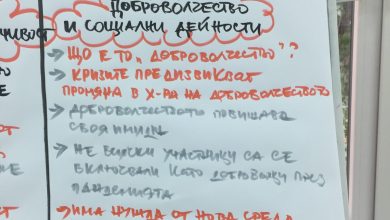 ДОБРОВОЛЧЕСТВО
И СОЦИАЛНИ ДЕЙНОСТИ
ЩО Е ТО „ДОБРОВОЛЧЕСТВО"?
КРИЗИТЕ ПРЕДИЗВИКВАТ
ПРОМЯНА В Х-РА НА ДОБРОВОЛЧЕСТВОТО
ДОБРОВОЛЧЕСТВОТО ПОВИШАВА
СВОЯ ИМИДЖ
НЕ ВСИЧКИ УЧАСТНИЦИ СА СЕ
ВКЛЮЧВАЛИ КАТО ДОБРОВОЛЦИ ПРЕЗ
ПАНДЕМИЯТА
ИМА НУЖДА ОТ НОВА СРЕДА